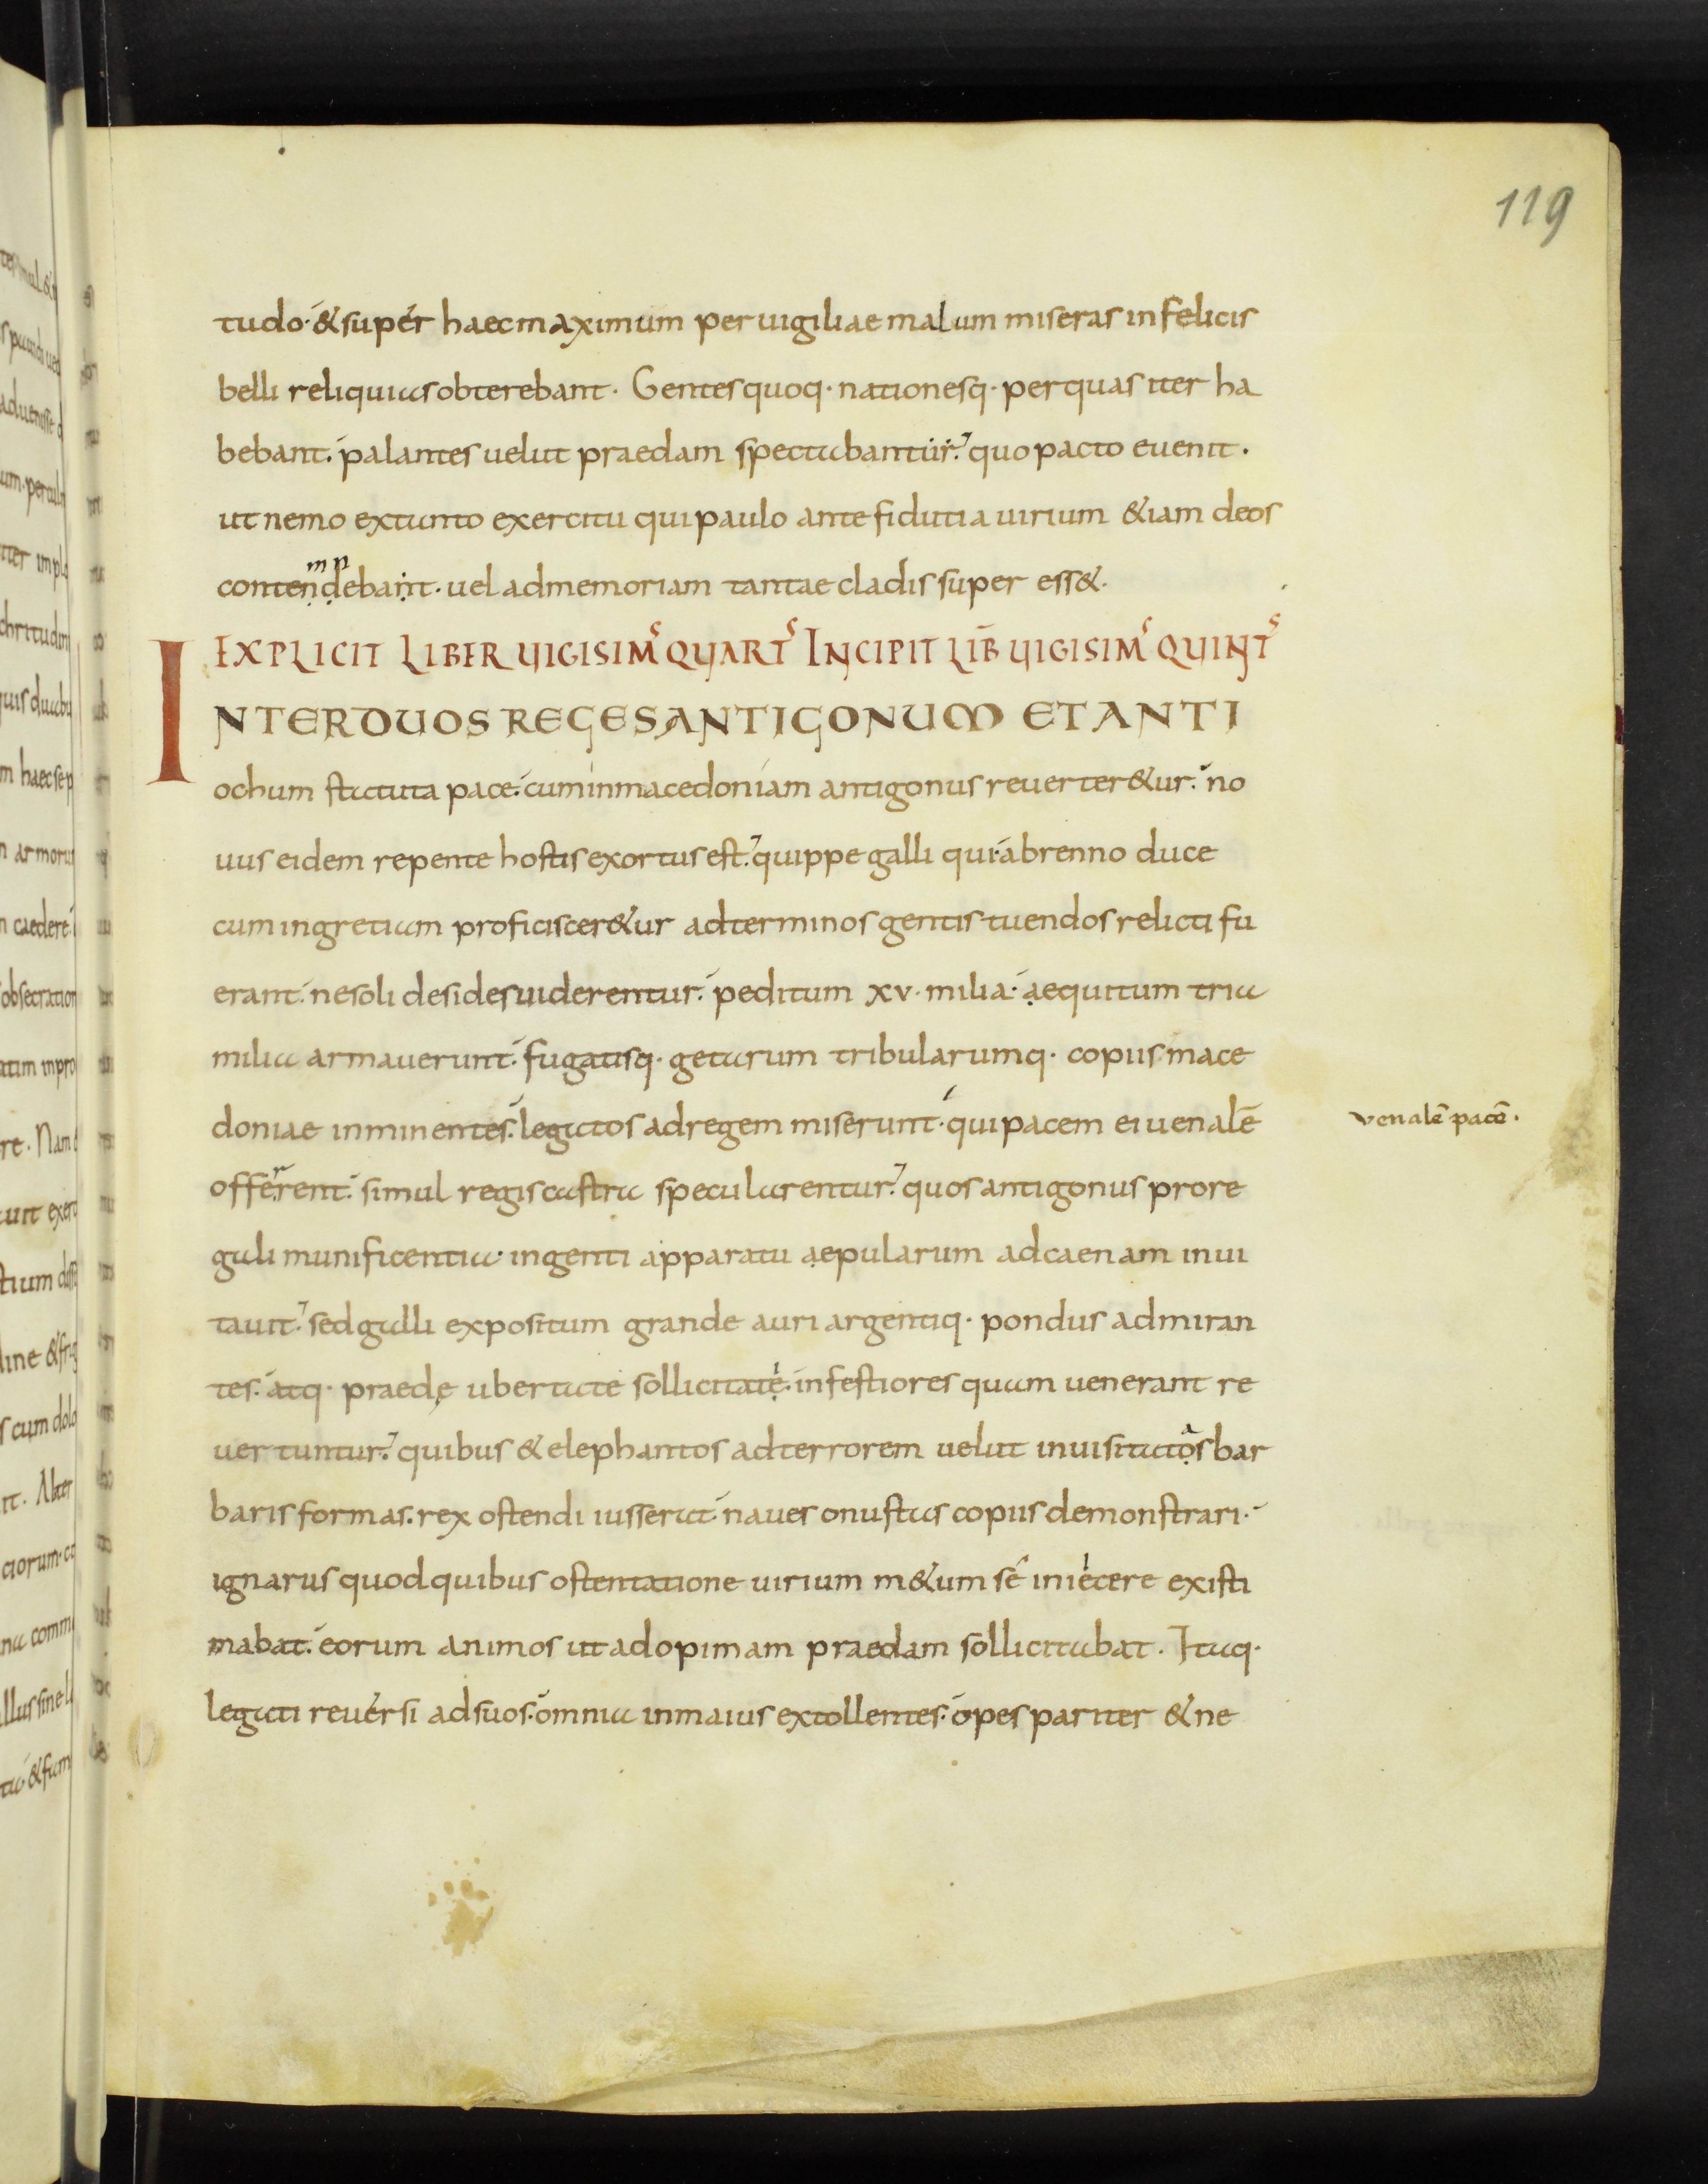 119
tudo· & super haec maximum peruigiliae malum miseras infelicis
belli reliquias obterebant· Gentes quoq· nationesq· per quas iter ha
bebant· palantes uelut praedam spectabantur· quo pacto euenit·
ut nemo ex tanto exercitu qui paulo ante fidutia uirium &iam deos
contendebant· uel ad memoriam tantae cladis super ess&·
mn
EXPLICIT LIBER UIGISIMꝰ QUARTꝰ INCIPIT LIB̄ UIGISIMꝰ QUINTꝰ
INTER DUOS REGES ANTIGONUM ET ANTI
ochum statuta pace· cum in macedoniam antigonus reuerter&ur· no
uus eidem repente hostis exortus est· quippe galli qui a brenno duce
cum in gretiam proficiscer&ur ad terminos gentis tuendos relicti fu
erant· ne soli desides uiderentur· peditum xv· milia· aequitum tria
milia armauerunt· fugatisq· getarum tribularumq· copiis mace
doniae inminentes· legatos ad regem miserunt· qui pacem ei uenalē
venalē pacē·
offerrent· simul regis castra specularentur· quos antigonus pro re
gali munificentia· ingenti apparatu aepularum ad caenam inui
tauit· sed galli expositum grande auri argentiq· pondus admiran
tes· atq· praedę ubertate sollicitate· infestiores quam uenerant re
uertuntur· quibus & elephantos ad terrorem uelut inusitatos bar
baris formas· rex ostendi iusserat· naues onustas copiis demonstrari·
ignarus quod quibus ostentatione uirium m&um se iniecere existi
mabat· eorum animos ut ad opimam praedam sollicitabat· Itaq·
legati reuersi ad suos· omnia in maius extollentes· opes pariter & ne